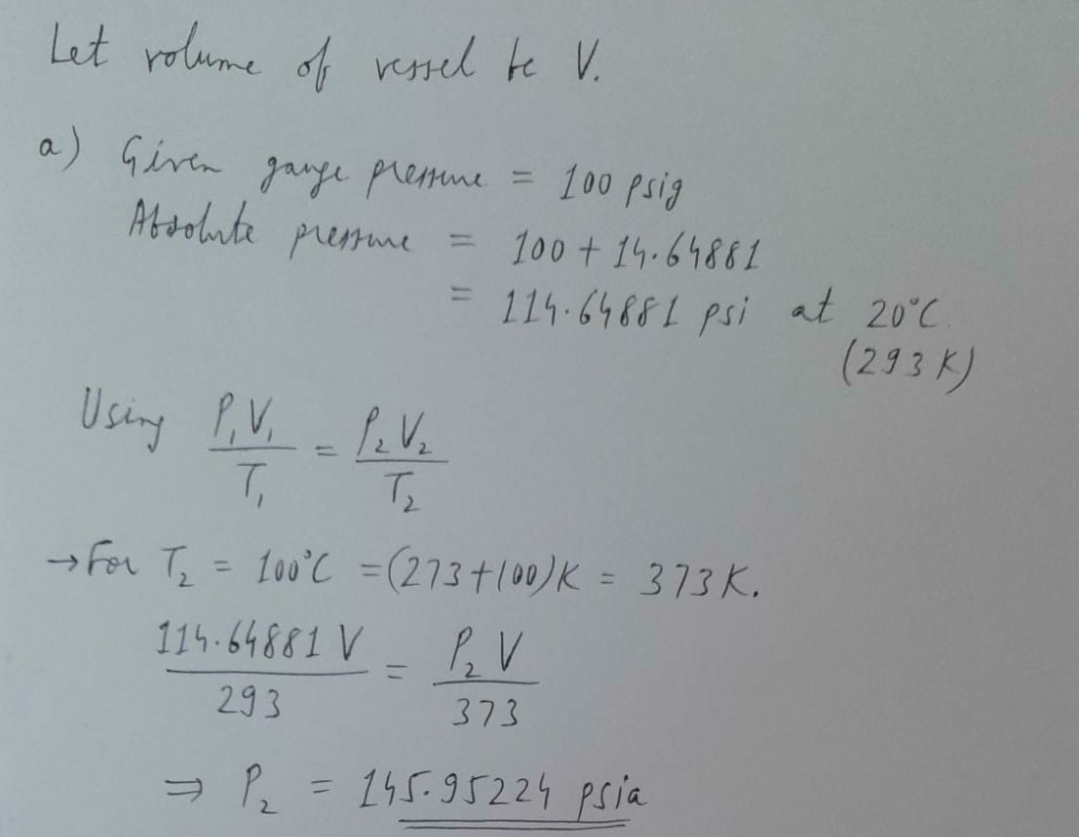 Let volume of vessel be V.
a) Given gauge pressure = 100 psig
Absolute pressure = 100 + 14.64881
= 114.64881 psi at 20°C
(293 K)
Using P₁V₁/T₁ = P₂V₂/T₂
→ For T₂ = 100°C = (273+100)K = 373K.
114.64881 V/293 = P₂ V/373
⇒ P₂ = 145.95224 psia